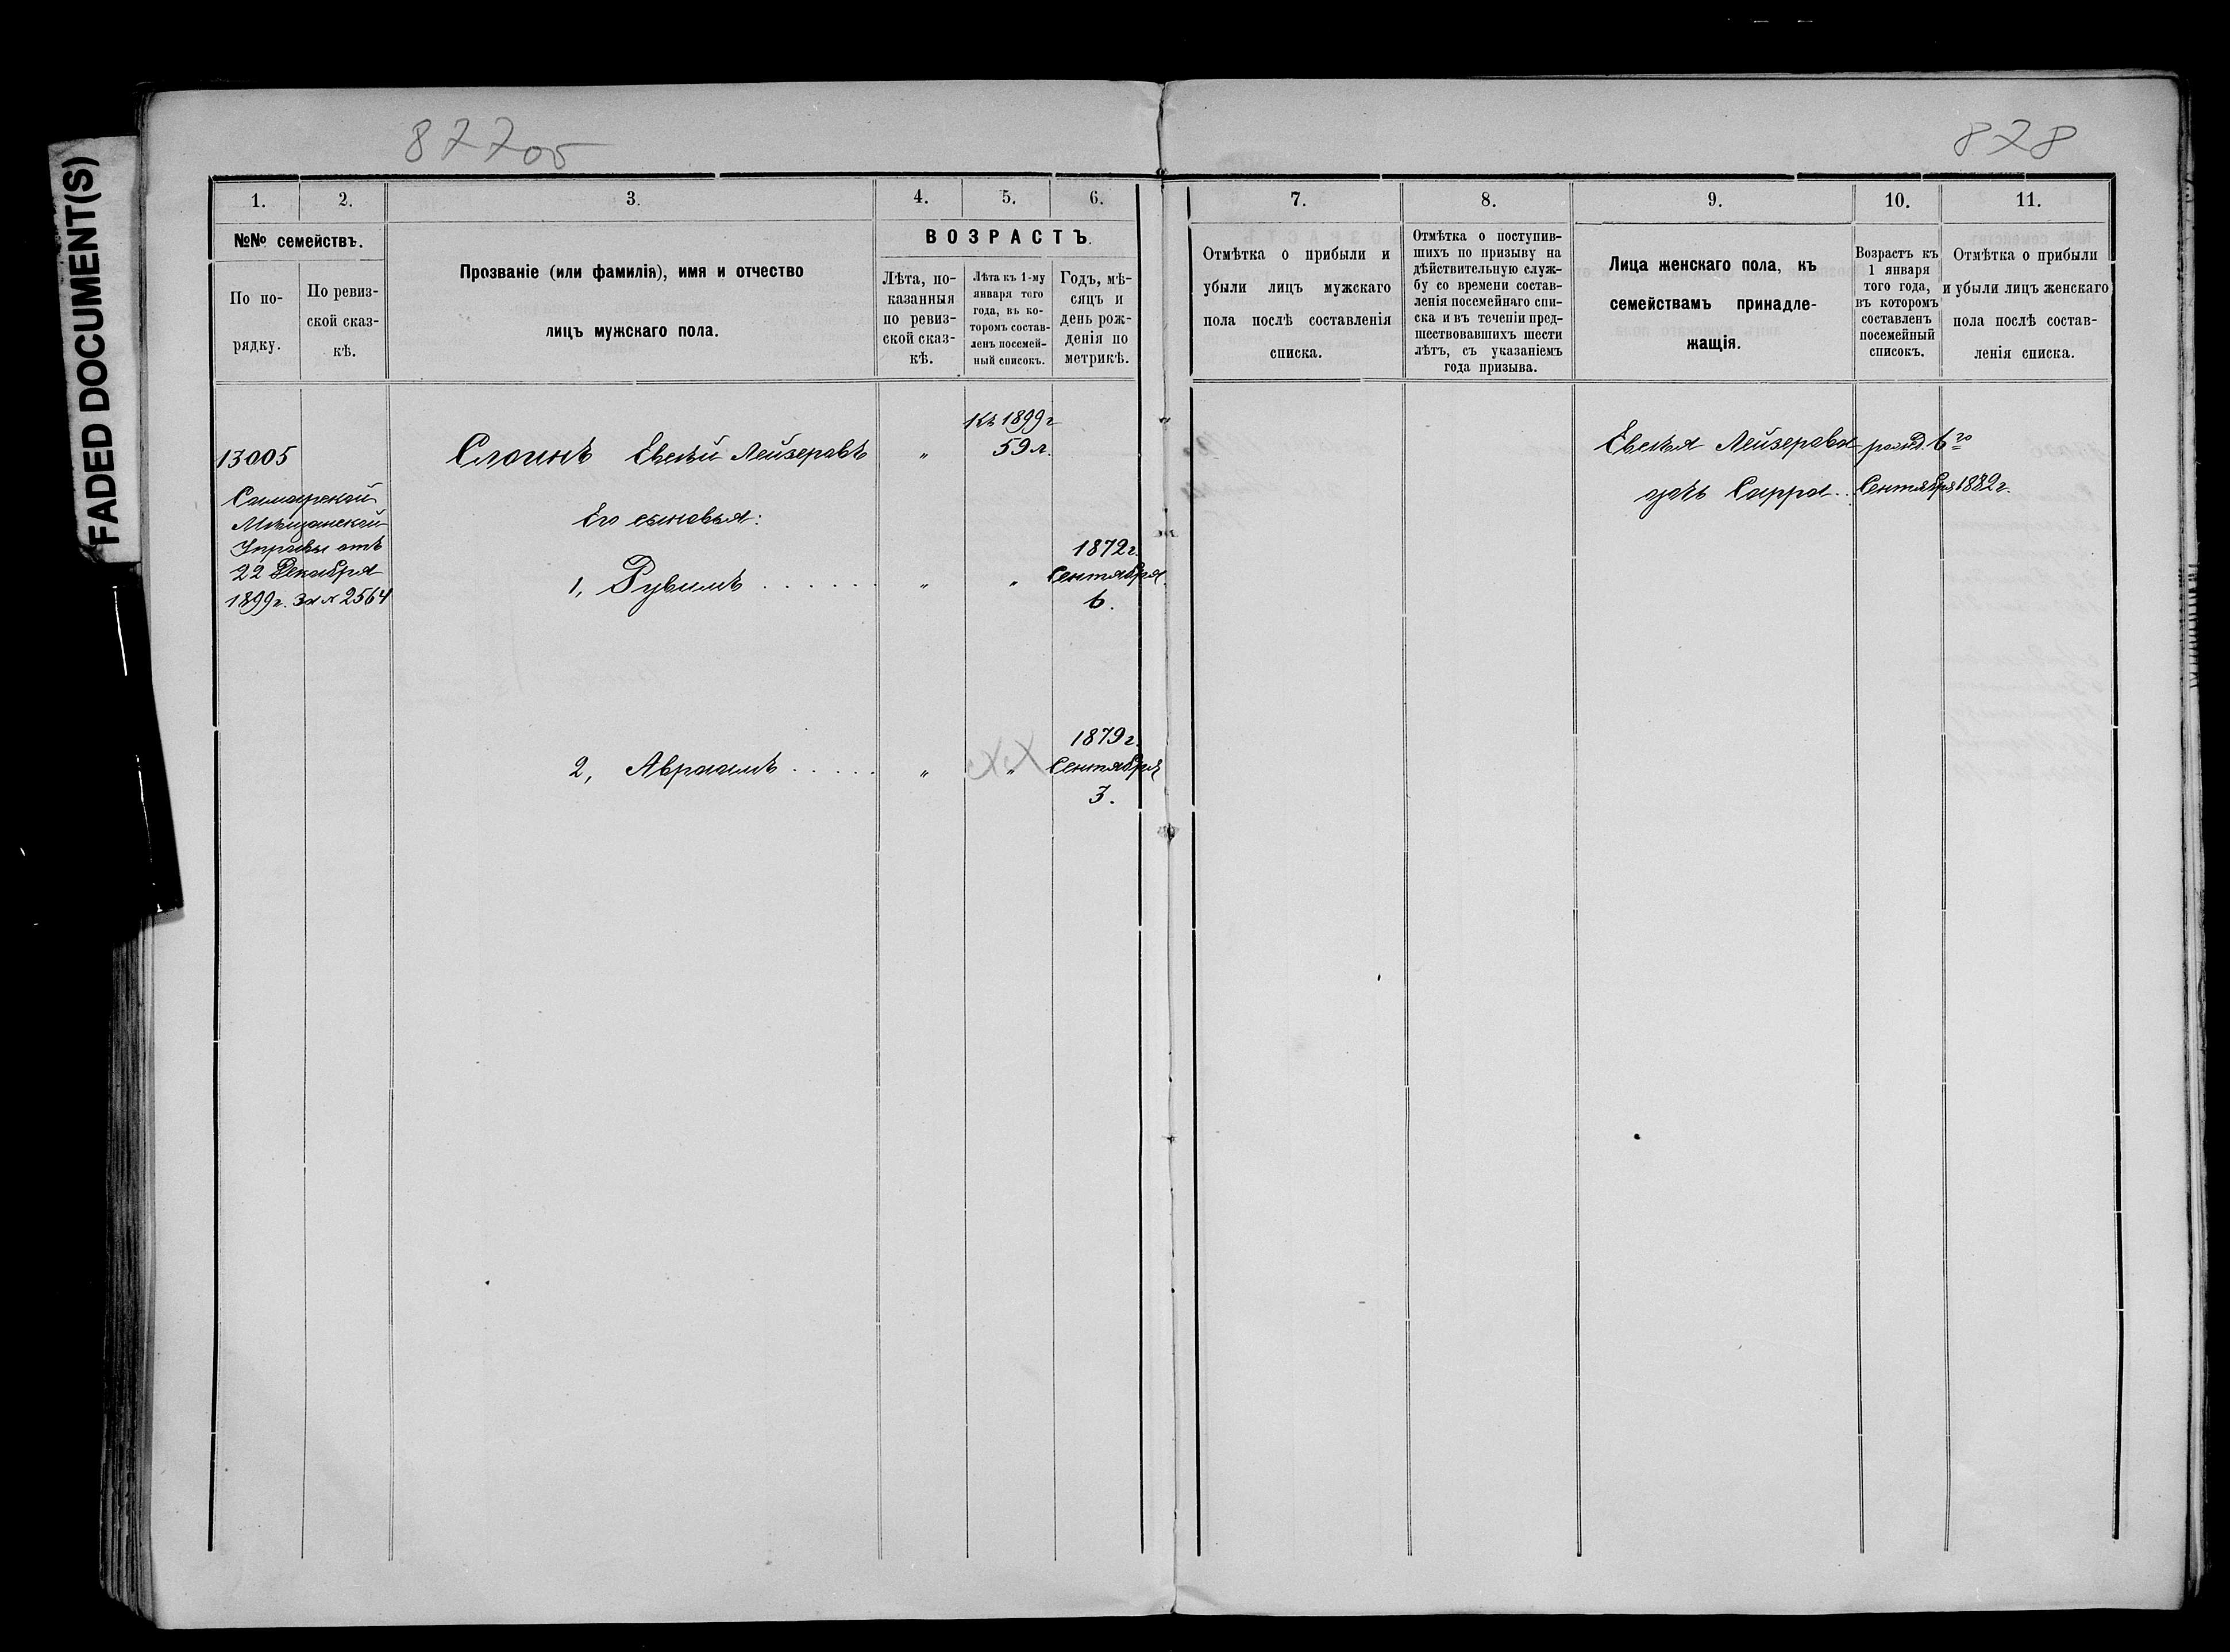 FADED DOCUMENT(S)
877об
878
1.
2.
3.
4.
5.
6.
№№ семействъ.
По по-
рядку.
По ревиз-
ской сказ-
кѣ.
Прозваніе (или фамилія), имя и отчество
лицъ мужскаго пола.
ВОЗРАСТЪ.
Лѣта, по-
казанныя
по ревиз-
ской сказ-
кѣ.
Лѣта къ 1-му
января того
года, въ ко-
торомъ состав-
ленъ посемей-
ный списокъ.
Годъ, мѣ-
сяцъ и
день рож-
денія по
метрикѣ.
13005
Самарской
Мѣщанской
Управы отъ
22 Декабря
1899г. За № 2564
Слоинъ Евсѣй Лейзеровъ
"
Къ 1899г
59 л.
Его сыновья:
1, Рувимъ . . . . . .
"
"
1872г.
Сентября
6.
2, Авраамъ . . . . .
"
"
1879г.
Сентября
3.
7.
8.
9.
10.
11.
Отмѣтка о прибыли и
убыли лицъ мужскаго
пола послѣ составленія
списка.
Отмѣтка о поступив-
шихъ по призыву на
дѣйствительную служ-
бу со времени состав-
ленія посемейнаго спи-
ска и въ теченіи пред-
шествовавшихъ шести
лѣтъ, съ указаніемъ
года призыва.
Лица женскаго пола, къ
семействамъ принадле-
жащія.
Возрастъ къ
1 января
того года,
въ которомъ
составленъ
посемейный
списокъ.
Отмѣтка о прибыли
и убыли лицъ женскаго
пола послѣ состав-
ленія списка.
Евсѣя Лейзерова рожд. 6го
дочь Сарра . . Сентября 1882г.